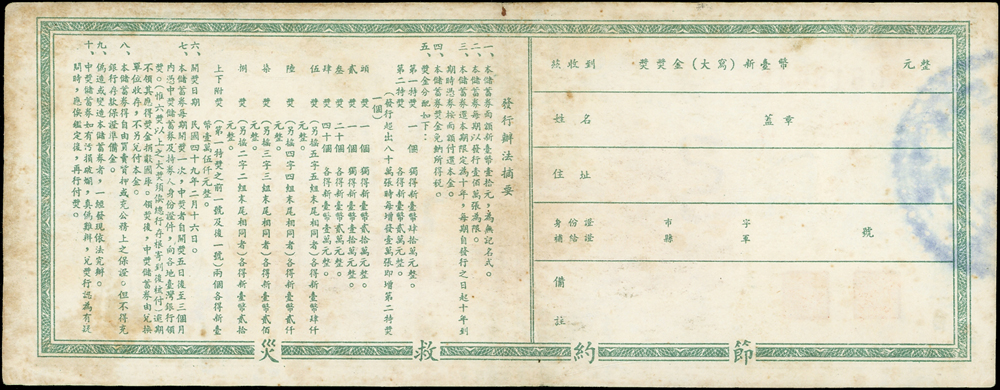 茲收到 獎獎金(大寫)新臺幣 元整
姓名 蓋章
住址
身份證 市 字 號
補給證 縣 軍
備註
發行辦法摘要
一、本儲蓄券面額新臺幣壹拾元,為無記名式。
二、本儲蓄券每期以發行壹佰萬張為限。
三、本儲蓄券還本期限定為十年,每期自發行之日起十年到
期時憑券按面額付還本金。
四、本儲蓄券獎金免納所得稅。
五、獎金分配如下:
第一特獎 一個 獨得新臺幣肆拾萬元整。
第二特獎 各得新臺幣貳萬元整。
(發行超出八十萬張時每增發壹萬張即增第二特獎
一個)
頭獎 一個 獨得新臺幣貳拾萬元整。
貳獎 一個 獨得新臺幣壹拾萬元整。
叁獎 二十個 各得新臺幣貳萬元整。
肆獎 四十個 各得新臺幣壹萬元整。
伍獎 (另搖五字五組末尾相同者)各得新臺幣肆仟
元整。
陸獎 (另搖四字四組末尾相同者)各得新臺幣貳仟
元整。
柒獎 (另搖三字三組末尾相同者)各得新臺幣貳佰
元整。
捌獎 (另搖二字二組末尾相同者)各得新臺幣貳拾
元整。
上下附獎 (第一特獎之前一號及後一號)兩個各得新臺
幣壹萬伍仟元整。
六、開獎日期 民國四十九年二月十六日。
七、本儲蓄券每期開獎一次,中獎者自開獎五日後至三個月
內憑中獎儲蓄券及持券人身份證件,向各地臺灣銀行領
獎。(惟六獎以上之大獎須俟總行存根寄到後核付)逾期
不領其應得獎金捐獻國庫。領獎後,中獎儲蓄券由兌換
單位收存,不另兌付本金。
八、本儲蓄券得自由買賣質押或充公務上之保證。但不得充
銀行存款保證準備金。
九、偽造或變造本儲蓄券者,一經發現依法究辦。
十、中獎儲蓄券如有污損破爛,真偽難辨,兌獎行認為有疑
問時,應俟鑑定後,再行付獎。
節約救災